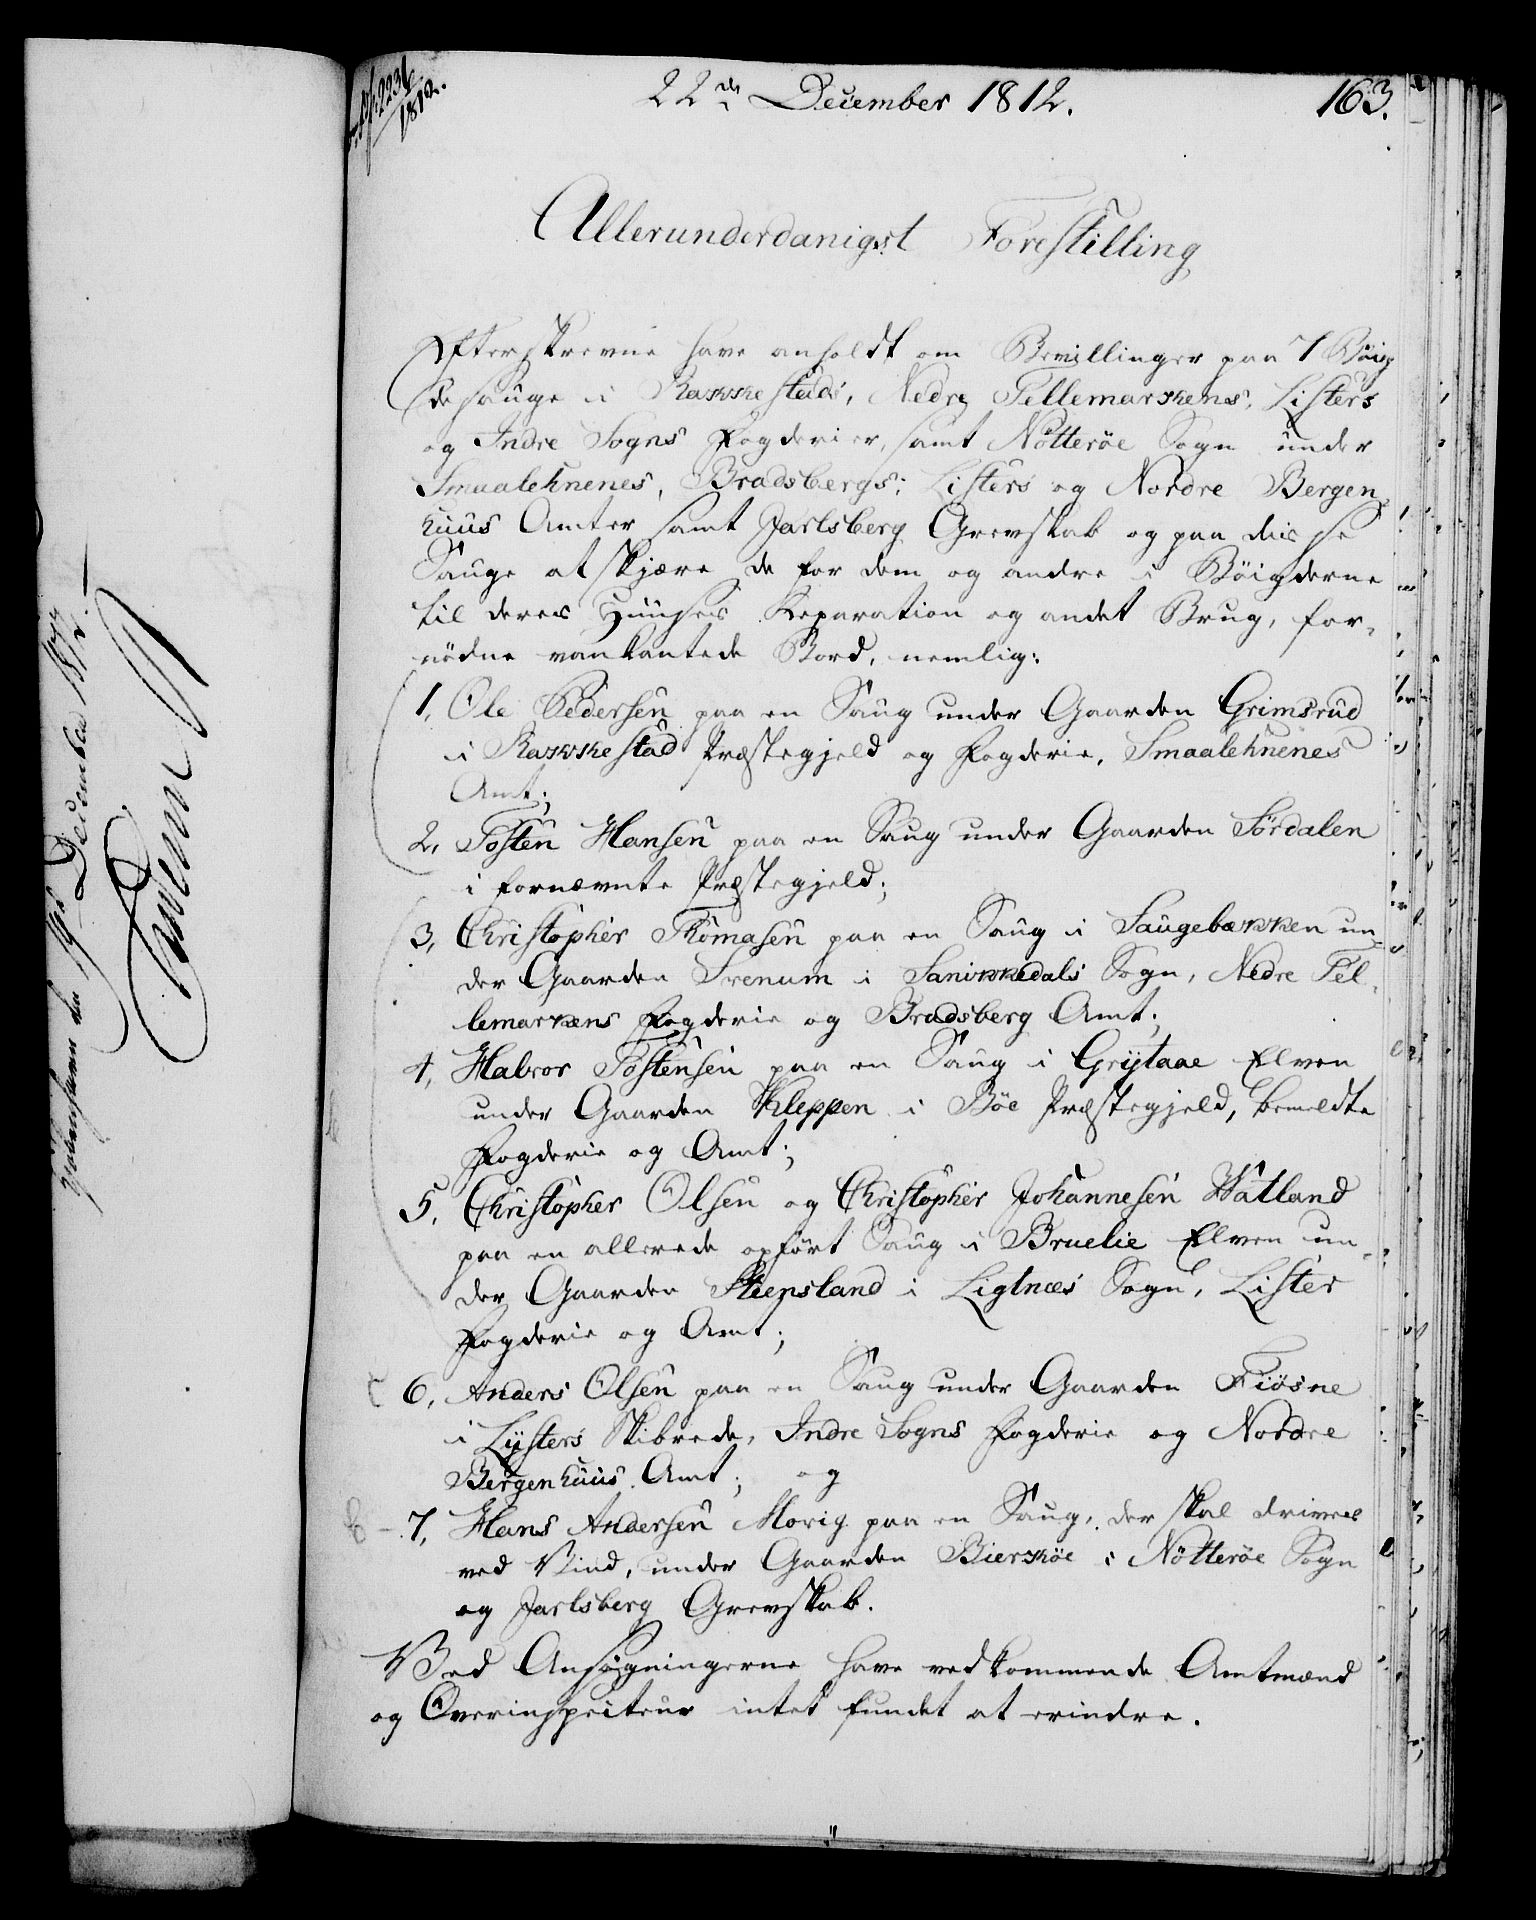 22de December 1812.
163.
2231/1812.
Allerunderdanigst Forestilling
Efterskrevne have anholdt om Bevillinger paa 7 Böig
desauge i Rakkestads, Nedre Tellemarkens, Listers
og Indre Sogns Fogderier, samt Nötteröe Sogn under
Smaalehnenes, Bradsbergs; Listers og Nordre Bergen-
huus Amter samt Jarlsberg Grevskab og paa disse
Sauge at skjære de for dem og andre i Böigderne
til deres Huuses Reparation og andet Brug, for-
nödne vankantede Bord, nemlig:
1, Ole Pedersen paa en Saug under Gaarden Grimsrud
i Rakkestad Præstegjeld og Fogderie, Smaalehnenes
Amt;
2, Tosten Hansen paa en Saug under Gaarden Sördalen
i fornævnte Præstegjeld;
3, Christopher Thomasen paa en Saug i Saugebækken un-
der Gaarden Srenum i Sanikkedals Sogn, Nedre Tel-
lemarkens Fogderie og Bradsberg Amt;
4, Halvor Tostensen paa en Saug i Grijtaae Elven
under Gaarden Kleppen i Böe Præstegjeld, bemeldte
Fogderie og Amt;
5, Christopher Olsen og Christopher Johannesen Watland
paa en allerede opfört Saug i Bruelie Elven un-
der Gaarden Steensland i Liglnæs Sogn, Lister
Fogderie og Amt;
6, Anders Olsen paa en Saug under Gaarden Fiösne
i Lysters Skibrede, Indre Sogns Fogderie og Nordre
Bergenhuus Amt; og
7, Hans Andersen Morig paa en Saug, der skal drives
ved Vind, under Gaarden Bierköe i Nötteröe Sogn
og Jarlsberg Grevskab.
Ved Ansögningerne have vedkommende Amtmænd
og Overinspecteur intet fundet at erindre.
Kiöbenhavn den 19de December 1812.